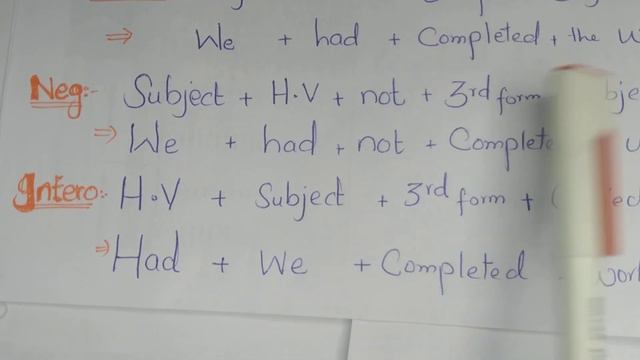 ⇒ We + had + Completed + the
Neg:- Subject + H.V + not + 3rd form
⇒ We + had + not +
Intero:- H.V + Subject + 3rd form +
⇒ Had + We + Completed